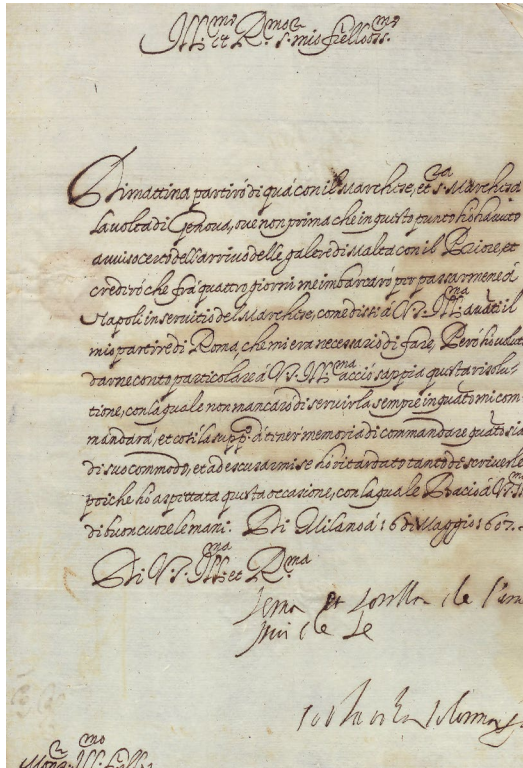 Ill.mo et R.mo S.r mio
Di mattina partirò di quà con il Marchese, et S.ra Marchesa
la volta di Genova, ove non prima che in questo punto hò havuto
aviso certo dell'arrivo delle galere di Malta con il Priore, et
credirò che frà quattro giorni me imbarcarò per passarmene à
Napoli in servitio del Marchese, come dissi à V.S. Ill.ma avāti il
mio partire di Roma, che mi era necessario di fare. Però hò
darne conto particolare à V.S. Ill.ma acciò sappia questa risolu-
tione, con la quale non mancarò di servirla sempre in quāto mi com
mandarà, et così la supp.co à tener memoria di commandare quāto sia
di suo commodo, et ad escusarmi se hò ritardato tanto de scriverle
poiche hò aspettata questa occasione, con la quale Bacio à V.S.
di buon cuore le mani. Di Milano à 16 di Maggio 1607.
Di V.S. Ill.ma et R.ma